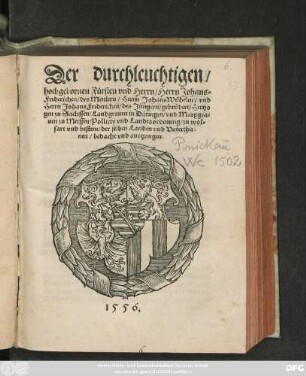 Der durchleuchtigen/
hochgebornen Fürsten vnd Herrn/ Herrn Johans-
Friderichen/ des Mittlern/ Herrn Johans Wilhelm/ vnd
Herrn Johans Friderichen/ des Jüngern/ gebrüdere/ Hertzo
gen zu Sachssen/ Landgrauen in Düringen/ vnd Marggra
uen zu Meissen/ Policey vnd Landtsordenung/ zu wol-
fart vnd besten/ der selben Landen vnd Vnterthas
nen/ bedacht vnd ausgangen.
Ponickau
Wc 1502
1556.